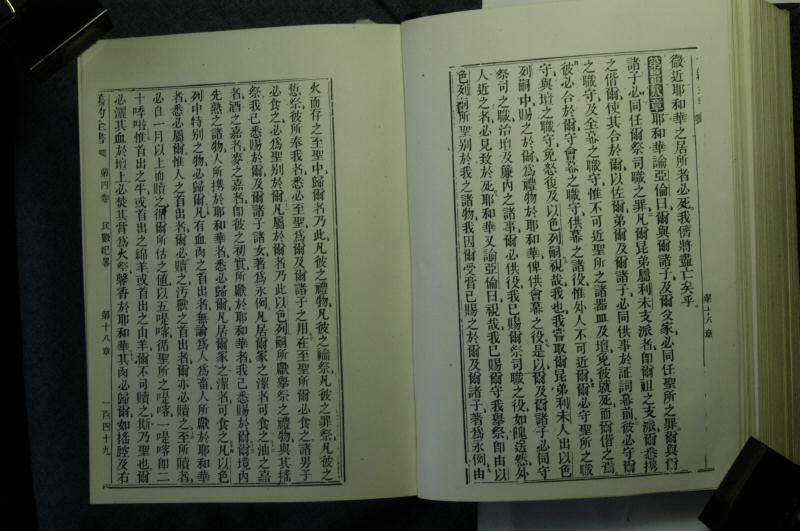 微近耶和華之居所者必死我儕將盡亡矣乎
第十八章耶和華諭亞倫曰爾與爾諸子及爾父家必同任聖所之罪爾與爾
諸子必同任爾祭司職之罪凡爾昆弟屬利未支派者即爾祖之支派爾悉携
之偕爾使其合於爾以佐爾弟爾及爾諸子必同供事於証詞幕前彼必守爾
之職守及全幕之職守惟不可近聖所之諸器皿及壇免彼就死而爾偕之焉
彼必合於爾守會幕之職守供幕之諸役惟外人不可近爾爾必守聖所之職
守與壇之職守免怒復及以色列嗣視哉我也我嘗取爾昆弟利未人出以色
列嗣中賜之於爾為禮物於耶和華俾供會幕之役是以爾及爾諸子必同守
祭司之職治壇及簾內之諸事爾必供役我已賜爾祭司職之役如餽送然外
人近之者必見致於死耶和華又諭亞倫曰視哉我已賜爾守我擧祭即由以
色列嗣所聖別於我之諸物我因爾受膏已賜之於爾及爾諸子著為永例由
第十八章
火而存之至聖中歸爾者乃此凡彼之禮物凡彼之輸祭凡彼之罪祭凡彼之
愆祭彼所奉我者悉必至聖為爾及爾諸子之用在至聖所爾必食之諸男子
必食之必為聖別於爾凡屬於爾者乃此以色列嗣所獻擧祭之禮物與其搖
祭我已悉賜於爾及爾諸子諸女著為永例凡居爾家之潔者可食之油之嘉
者酒之嘉者麥之嘉者即彼之初實所獻於耶和華者我已悉賜於爾爾境內
先熟之諸物人所携於耶和華者悉必歸爾凡居爾家之潔者可食之凡以色
列中特別之物必歸爾凡有血肉之首出者無論為人為畜人所獻於耶和華
者悉必屬爾惟人之首出者爾必贖之汚獸之首出者爾亦必贖之至所贖者
必自一月以上而贖之循爾所估之値以五㖷喀循聖所之㖷喀一㖷喀即二
十㖷啦惟首出之牛或首出之綿羊或首出之山羊爾不可贖之斯乃聖也爾
必灑其血於壇上必焚其膏為火祭馨香於耶和華其肉必歸爾如搖腔及右
舊約全書 第四卷 民數紀畧 第十八章 一百四十九